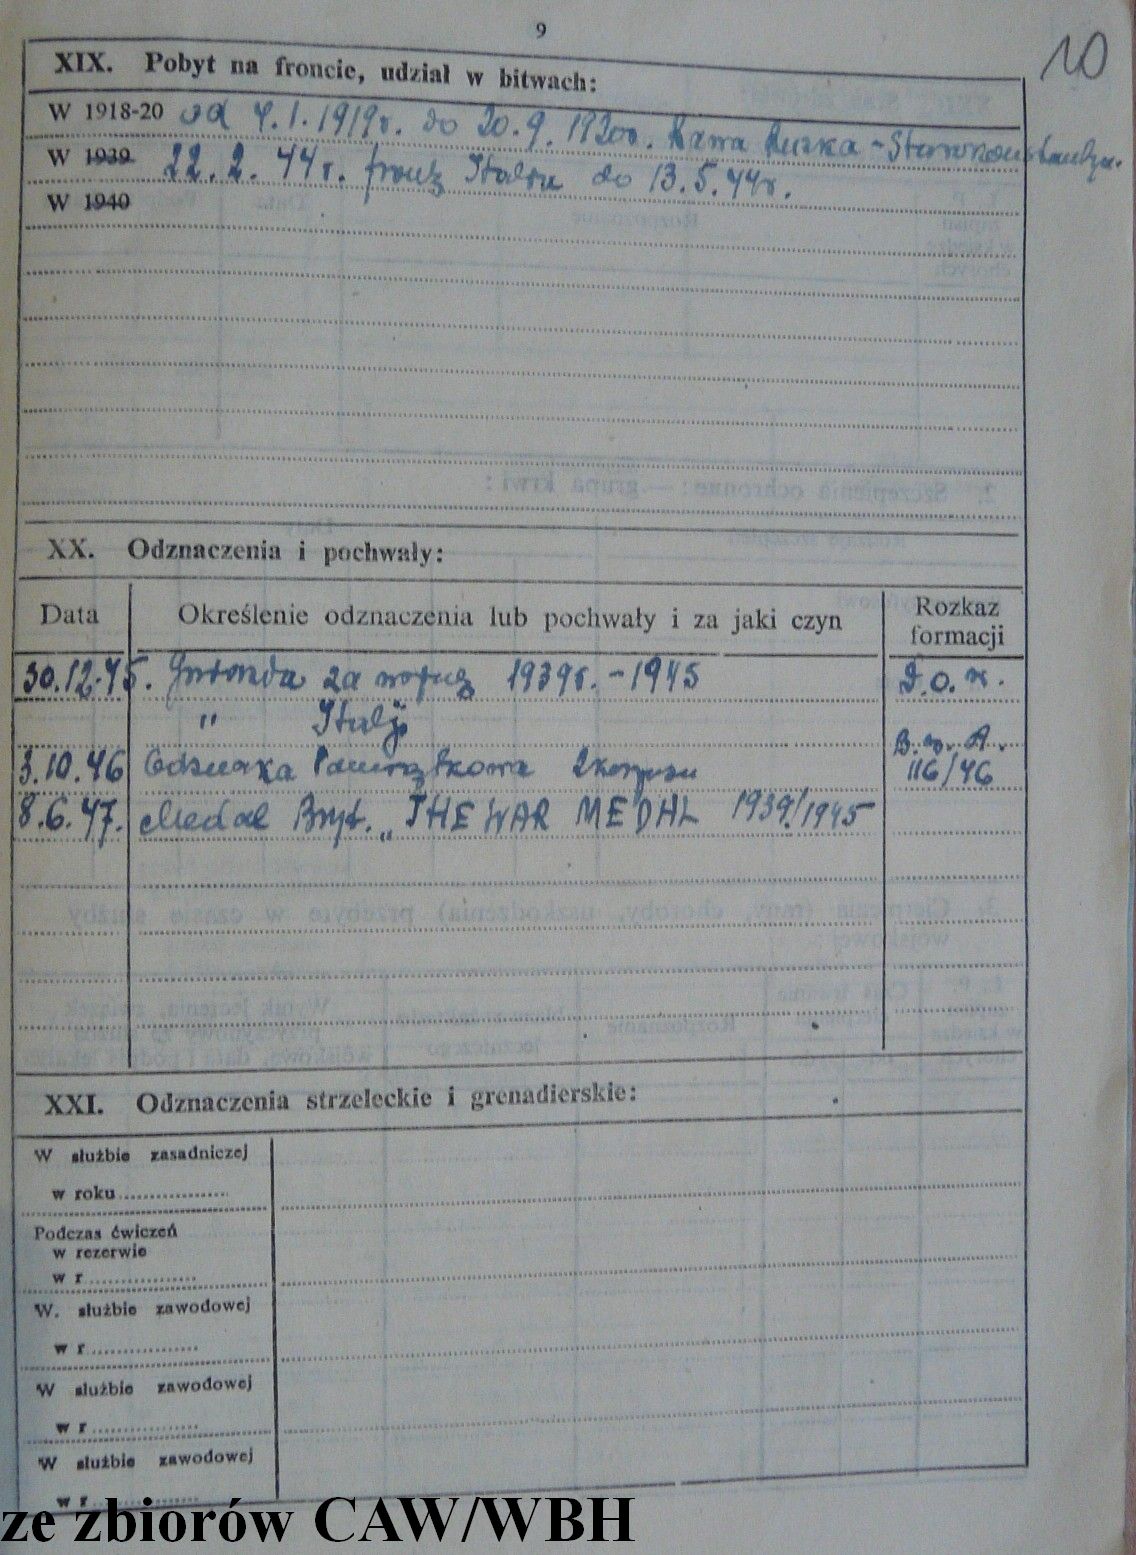 9
10
XIX. Pobyt na froncie, udział w bitwach:
W 1918-20 od 4.1.1919r. do 20.9.1920r. Rawa Ruska -
W 1939 22.2.44r. front Italia do 13.5.44r.
W 1940
XX. Odznaczenia i pochwały:
Data Określenie odznaczenia lub pochwały i za jaki czyn Rozkaz formacji
30.12.45. Gwiazda za wojnę 1939r. - 1945
" Italji
3.10.46 Odznaka Pamiątkowa 2 korpusu 116/46
8.6.47. Medal Bryt. „THE WAR MEDAL 1939/1945
XXI. Odznaczenia strzeleckie i grenadierskie:
W służbie zasadniczej
w roku
Podczas ćwiczeń
w rezerwie
w r
W. służbie zawodowej
w r
W służbie zawodowej
w r
W służbie zawodowej
w r
ze zbiorów CAW/WBH